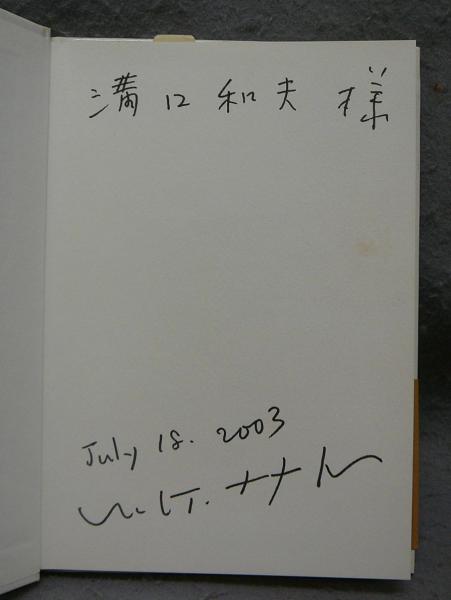 溝口和夫 様
July 18. 2003